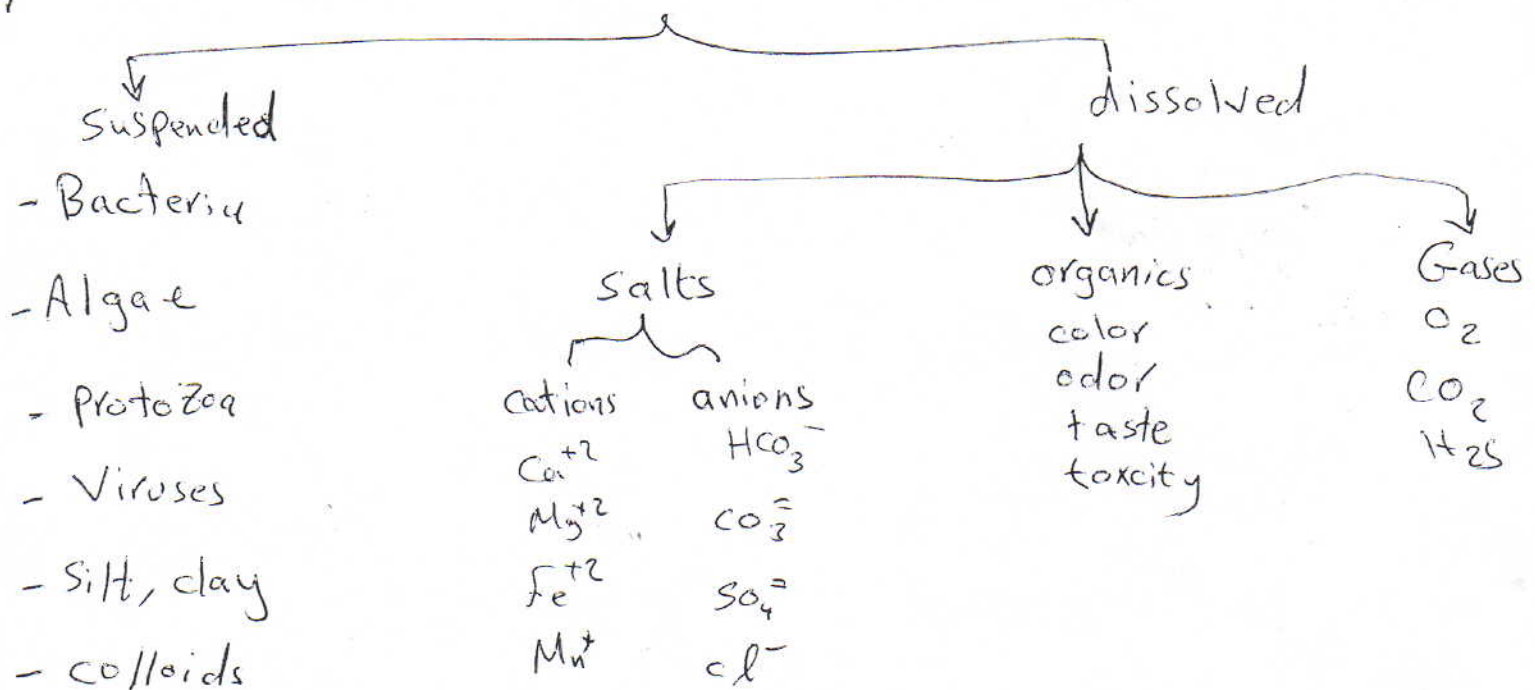 suspended
- Bacteria
- Algae
- protozoa
- Viruses
- Silt, clay
- colloids
dissolved
salts
cations
Ca⁺²
Mg⁺²
Fe⁺²
Mn⁺
anions
HCO₃⁻
CO₃⁼
SO₄⁼
Cl⁻
organics
color
odor
taste
toxcity
Gases
O₂
CO₂
H₂S